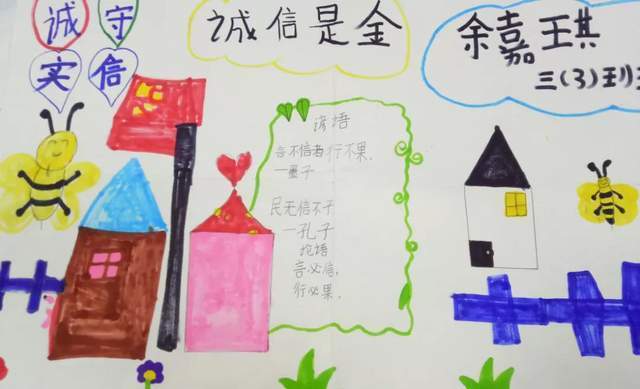 诚 守
实 信
诚信是金
余嘉琪
三(3)班
谚语
言不信者行不果,
一墨子
民无信不
一孔子
论语
言必信,
行必果.